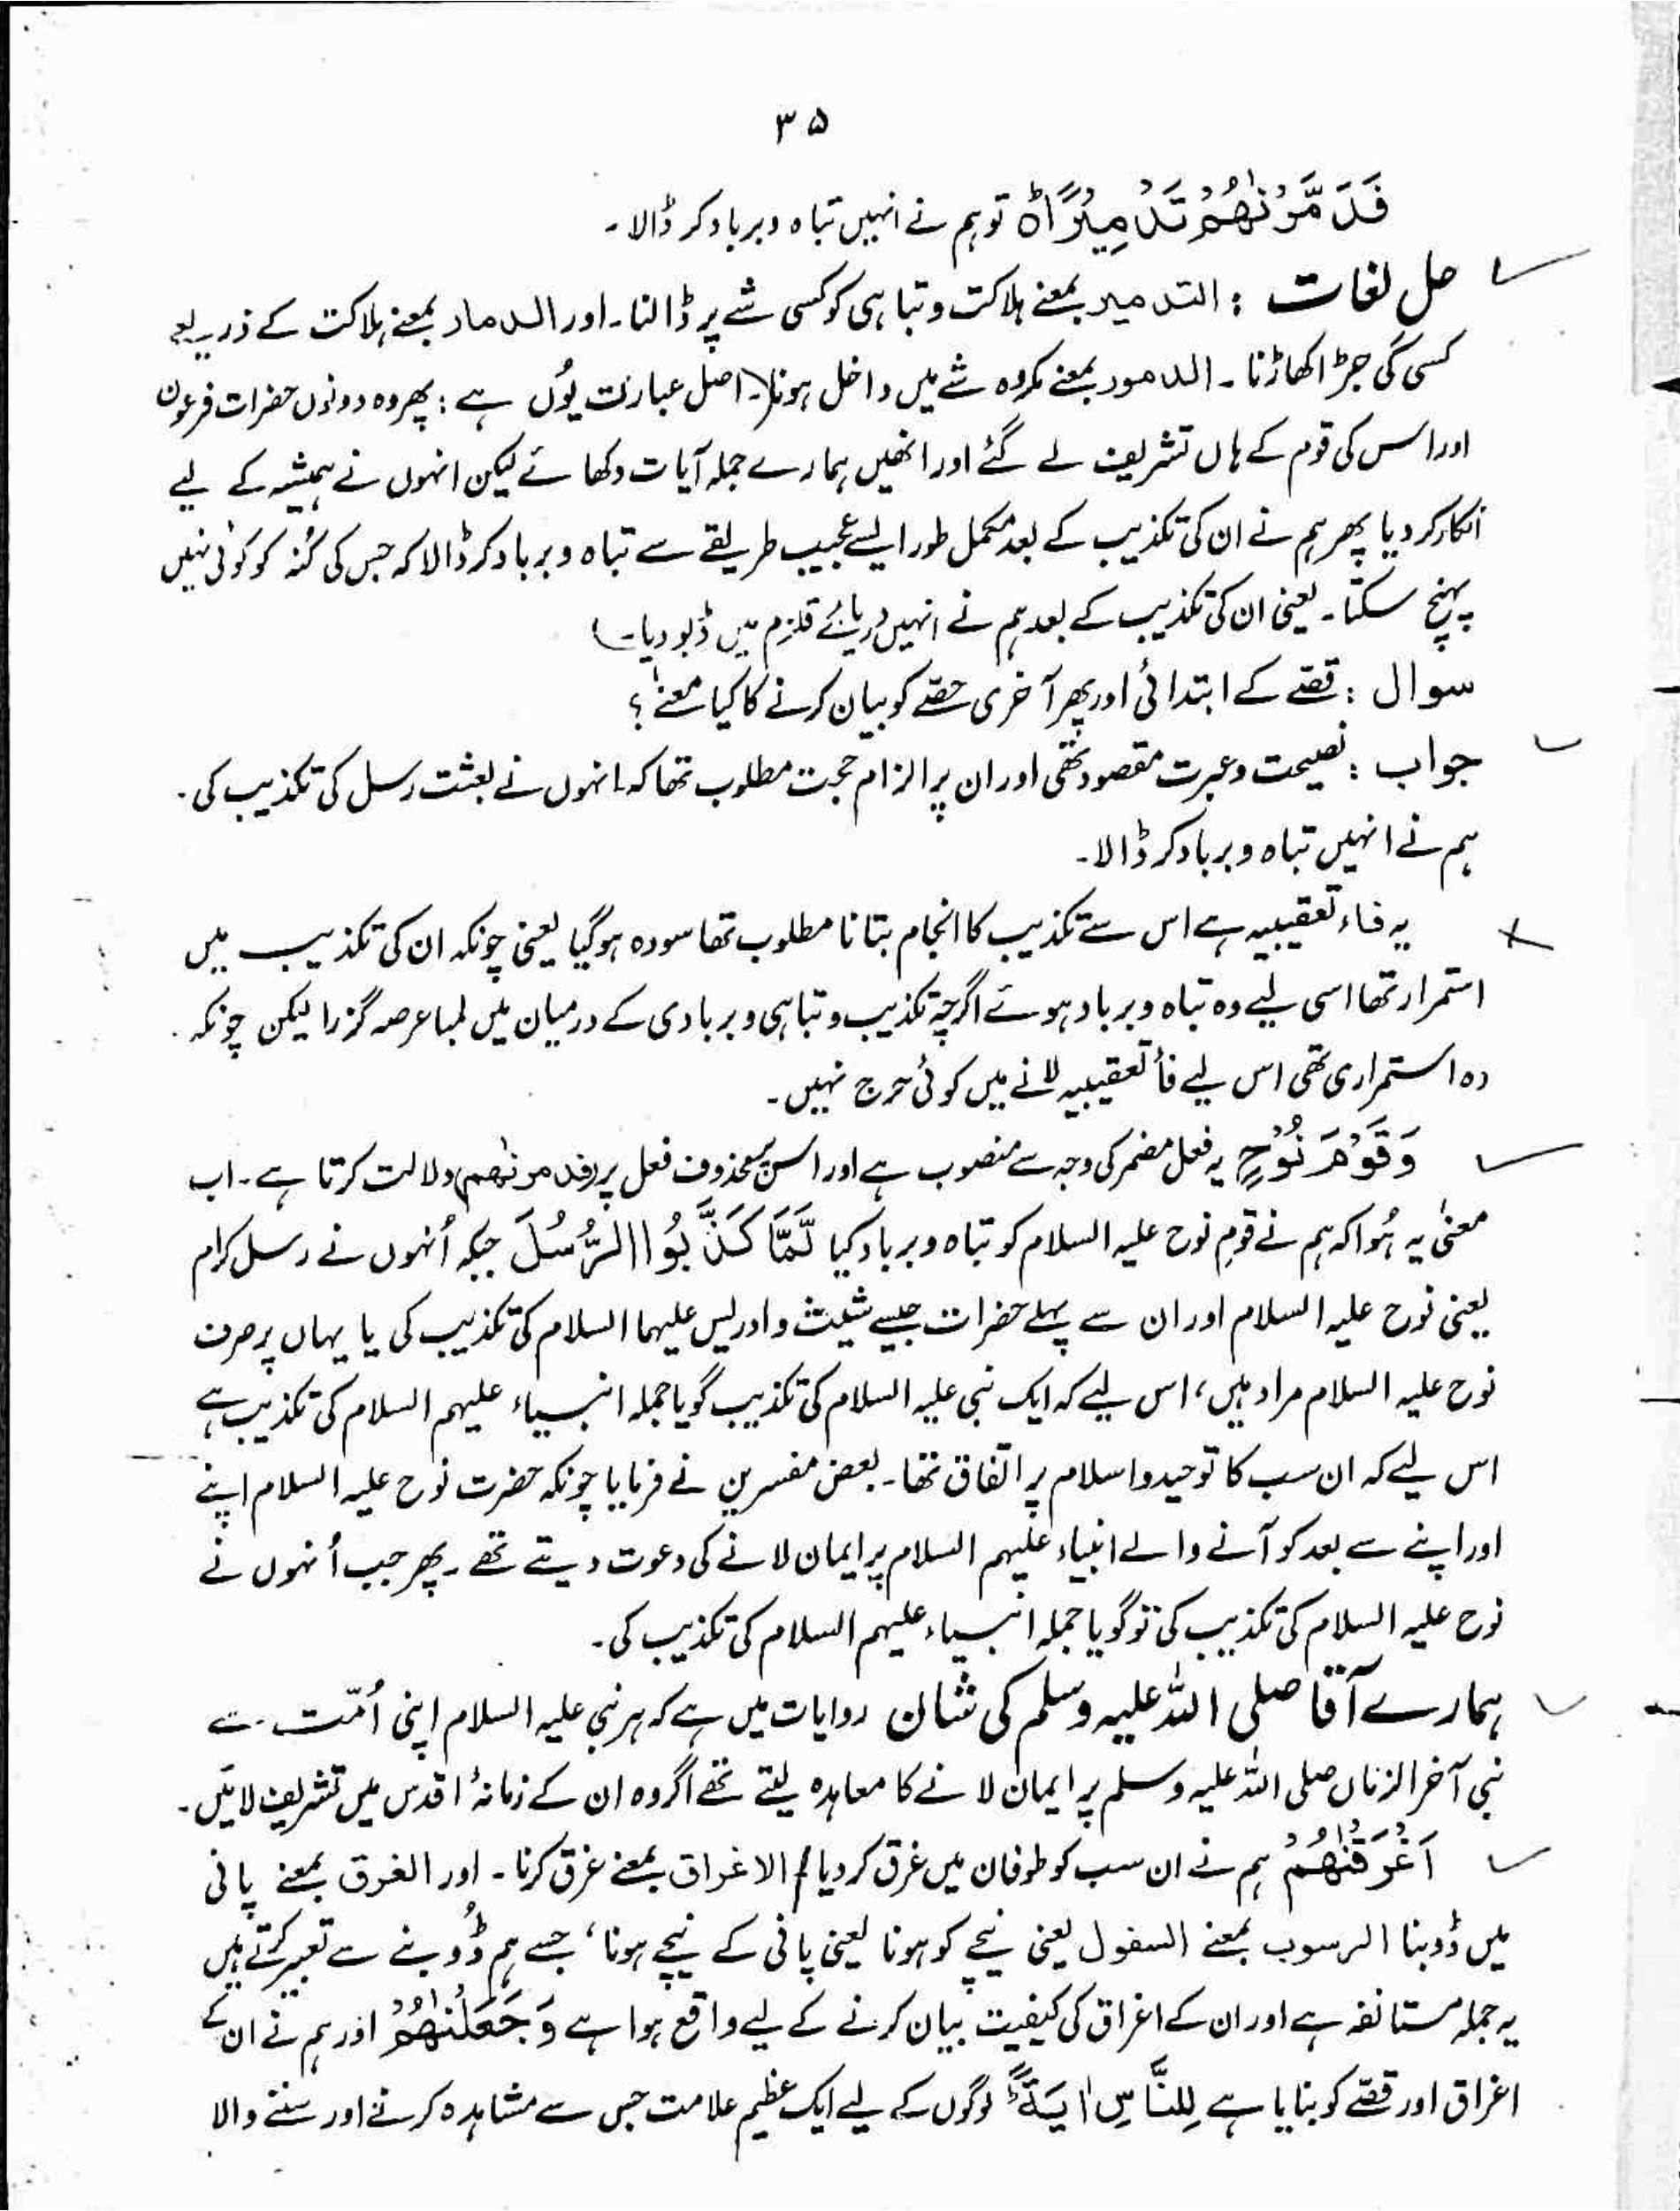 ۳۵
فَدَمَّرْنٰهُمْ تَدْمِيْرًاؕ۝ توہم نے انہیں تباہ وبرباد کر ڈالا۔
حل لغات : التدمیر بمعنے ہلاکت وتباہی کو کسی شے پر ڈالنا۔ اور الدمار بمعنے ہلاکت کے ذریعے
کسی کی جڑ اکھاڑنا۔ الدمور بمعنے مکروہ شے میں داخل ہونا (۔ اصل عبارت یُوں ہے : پھر وہ دونوں حضرات فرعون
اور اس کی قوم کے ہاں تشریف لے گئے اور انھیں ہمارے جملہ آیات دکھائے لیکن انہوں نے ہمیشہ کے لیے
انکار کر دیا پھر ہم نے ان کی تکذیب کے بعد مکمل طور ایسے عجیب طریقے سے تباہ و برباد کر ڈالا کہ جس کی کُنہ کو کوئی نہیں
پہنچ سکتا۔ یعنی ان کی تکذیب کے بعد ہم نے انہیں دریائے قلزم میں ڈبو دیا۔)
سوال : قصّے کے ابتدائی اور پھر آخری حصّے کو بیان کرنے کا کیا معنےٰ ؟
جواب : نصیحت وعبرت مقصود تھی اور ان پر الزام حجت مطلوب تھا کہ انہوں نے بعثت رسل کی تکذیب کی۔
ہم نے انہیں تباہ و برباد کر ڈالا۔
یہ فاء تعقیبیہ ہے اس سے تکذیب کا انجام بتانا مطلوب تھا سو وہ ہو گیا یعنی چونکہ ان کی تکذیب میں
استمرار تھا اسی لیے وہ تباہ و برباد ہوئے اگرچہ تکذیب و تباہی و بربادی کے درمیان میں لمبا عرصہ گزرا لیکن چونکہ
وہ استمراری تھی اس لیے فأ تعقیبیہ لانے میں کوئی حرج نہیں۔
وَقَوْمَ نُوْحٍ یہ فعل مضمر کی وجہ سے منصوب ہے اور اس محذوف فعل پر (فدمرنٰھم) دلالت کرتا ہے۔ اب
معنیٰ یہ ہُوا کہ ہم نے قومِ نوح علیہ السلام کو تباہ و برباد کیا لَّمَّا كَذَّبُوا الرُّسُلَ جبکہ اُنہوں نے رسل کرام
یعنی نوح علیہ السلام اور ان سے پہلے حضرات جیسے شیث و ادریس علیہما السلام کی تکذیب کی یا یہاں پر صرف
نوح علیہ السلام مراد ہیں، اس لیے کہ ایک نبی علیہ السلام کی تکذیب گویا جملہ انبیاء علیہم السلام کی تکذیب ہے
اس لیے کہ ان سب کا توحید و اسلام پر اتفاق تھا۔ بعض مفسرین نے فرمایا چونکہ حضرت نوح علیہ السلام اپنے
اور اپنے سے بعد کو آنے والے انبیاء علیہم السلام پر ایمان لانے کی دعوت دیتے تھے۔ پھر جب اُنہوں نے
نوح علیہ السلام کی تکذیب کی تو گویا جملہ انبیاء علیہم السلام کی تکذیب کی۔
ہمارے آقا صلی اللہ علیہ وسلم کی شان روایات میں ہے کہ ہر نبی علیہ السلام اپنی اُمّت سے
نبی آخر الزماں صلی اللہ علیہ وسلم پر ایمان لانے کا معاہدہ لیتے تھے اگر وہ ان کے زمانۂ اقدس میں تشریف لائیں۔
اَغْرَقْنٰهُمْ ہم نے ان سب کو طوفان میں غرق کر دیا / الاغراق بمعنے غرق کرنا۔ اور الغرق بمعنے پانی
میں ڈوبنا الرسوب بمعنے السفول یعنی نیچے کو ہونا یعنی پانی کے نیچے ہونا، جسے ہم ڈُوبنے سے تعبیر کرتے ہیں
یہ جملہ مستانفہ ہے اور ان کے اغراق کی کیفیت بیان کرنے کے لیے واقع ہوا ہے وَجَعَلْنٰهُمْ اور ہم نے ان کے
اغراق اور قصّے کو بنایا ہے لِلنَّاسِ اٰيَةًؕ لوگوں کے لیے ایک عظیم علامت جس سے مشاہدہ کرنے اور سننے والا